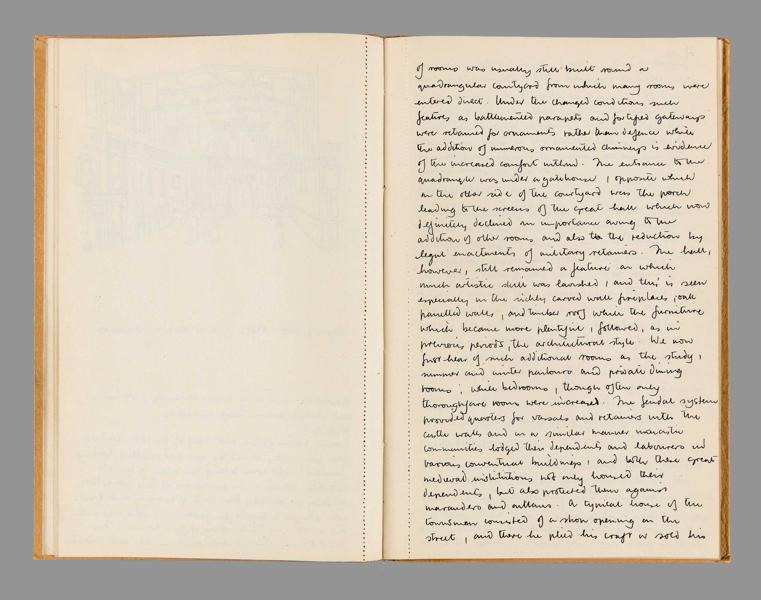 of rooms was usually still built round a
quadrangular courtyard from which many rooms were
entered direct. Under the changed conditions such
features as battlemented parapets and fortified gateways
were retained for ornaments rather than defence while
the addition of numerous ornamented chimneys is evidence
of the increased comfort within. The entrance to the
quadrangle was under a gatehouse, opposite which
on the other side of the courtyard was the porch
leading to the screens of the great hall which now
definitely declined in importance owing to the
addition of other rooms and also to the reduction by
legal enactments of military retainers. The hall,
however, still remained a feature on which
much artistic skill was lavished, and this is seen
especially in the richly carved wall fireplaces, oak
panelled walls, and timber roof while the furniture
which became more plentiful, followed, as in
previous periods, the architectural style. We now
first hear of such additional rooms as the study,
summer and winter parlours and private dining
rooms; while bedrooms, though often only
thoroughfare rooms were increased. The feudal system
provided quarters for vassals and retainers within the
castle walls and in a similar manner monastic
communities lodged their dependents and labourers in
various conventual buildings, and both these great
medieval institutions not only housed their
dependents, but also protected them against
marauders and outlaws. A typical house of the
townsman consisted of a shop opening on the
street, and there he plied his craft or sold his